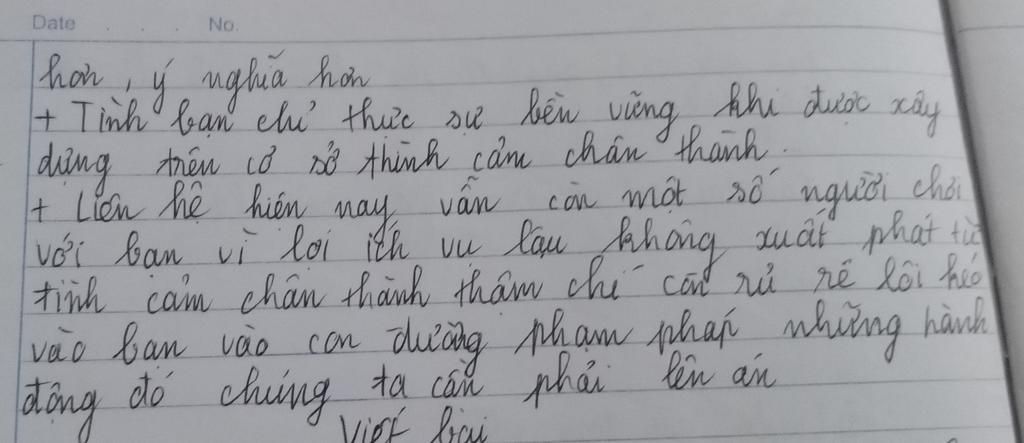 Date No.
hơn, ý nghĩa hơn
+ Tình bạn chỉ thực sự bền vững khi được xây
dựng trên cơ sở thình cảm chân thành.
+ Liên hệ hiện nay vẫn còn một số người chơi
với bạn vì lợi ích vu lậu không xuất phát từ
tình cảm chân thành thậm chí còn rủ rê lôi kéo
vào bạn vào con đường phạm pháp những hành
động đó chúng ta cần phải lên án
Viết bài